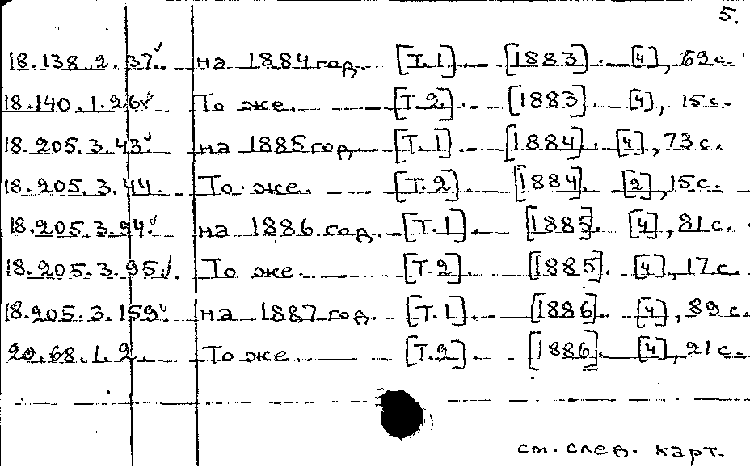 5.
18.138.2.37. на 1884 год. [Т.1]. [1883]. [4], 69 с.
18.140.1.26. То же. [Т.2]. [1883]. [4], 15 с.
18.205.3.43. на 1885 год [Т.1]. [1884]. [4], 73 с.
18.205.3.44. То же. [Т.2]. [1884]. [2], 15 с.
18.205.3.94. на 1886 год. [Т.1]. [1885]. [4], 81 с.
18.205.3.95. То же. [Т.2]. [1885]. [4], 17 с.
18.205.3.159. на 1887 год. [Т.1]. [1886]. [4], 89 с.
20.68.1.2. То же. [Т.2]. [1886]. [4], 21 с.
см. след. карт.